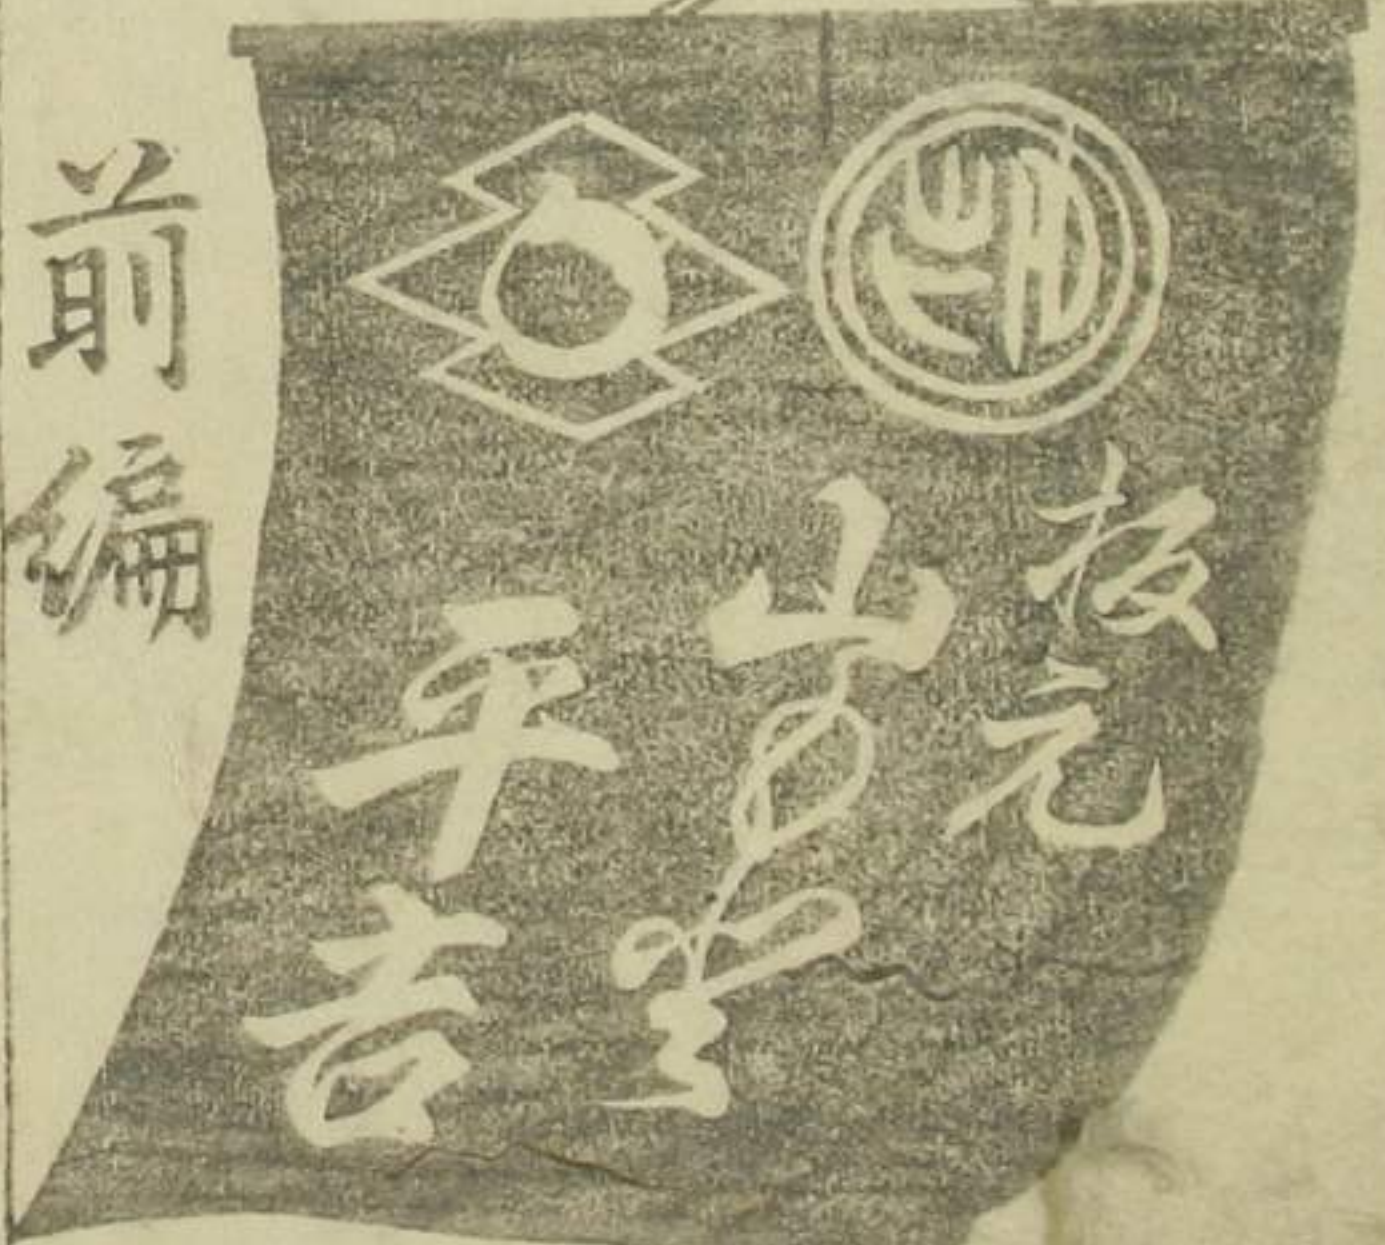 板元
山本屋
平吉
前編